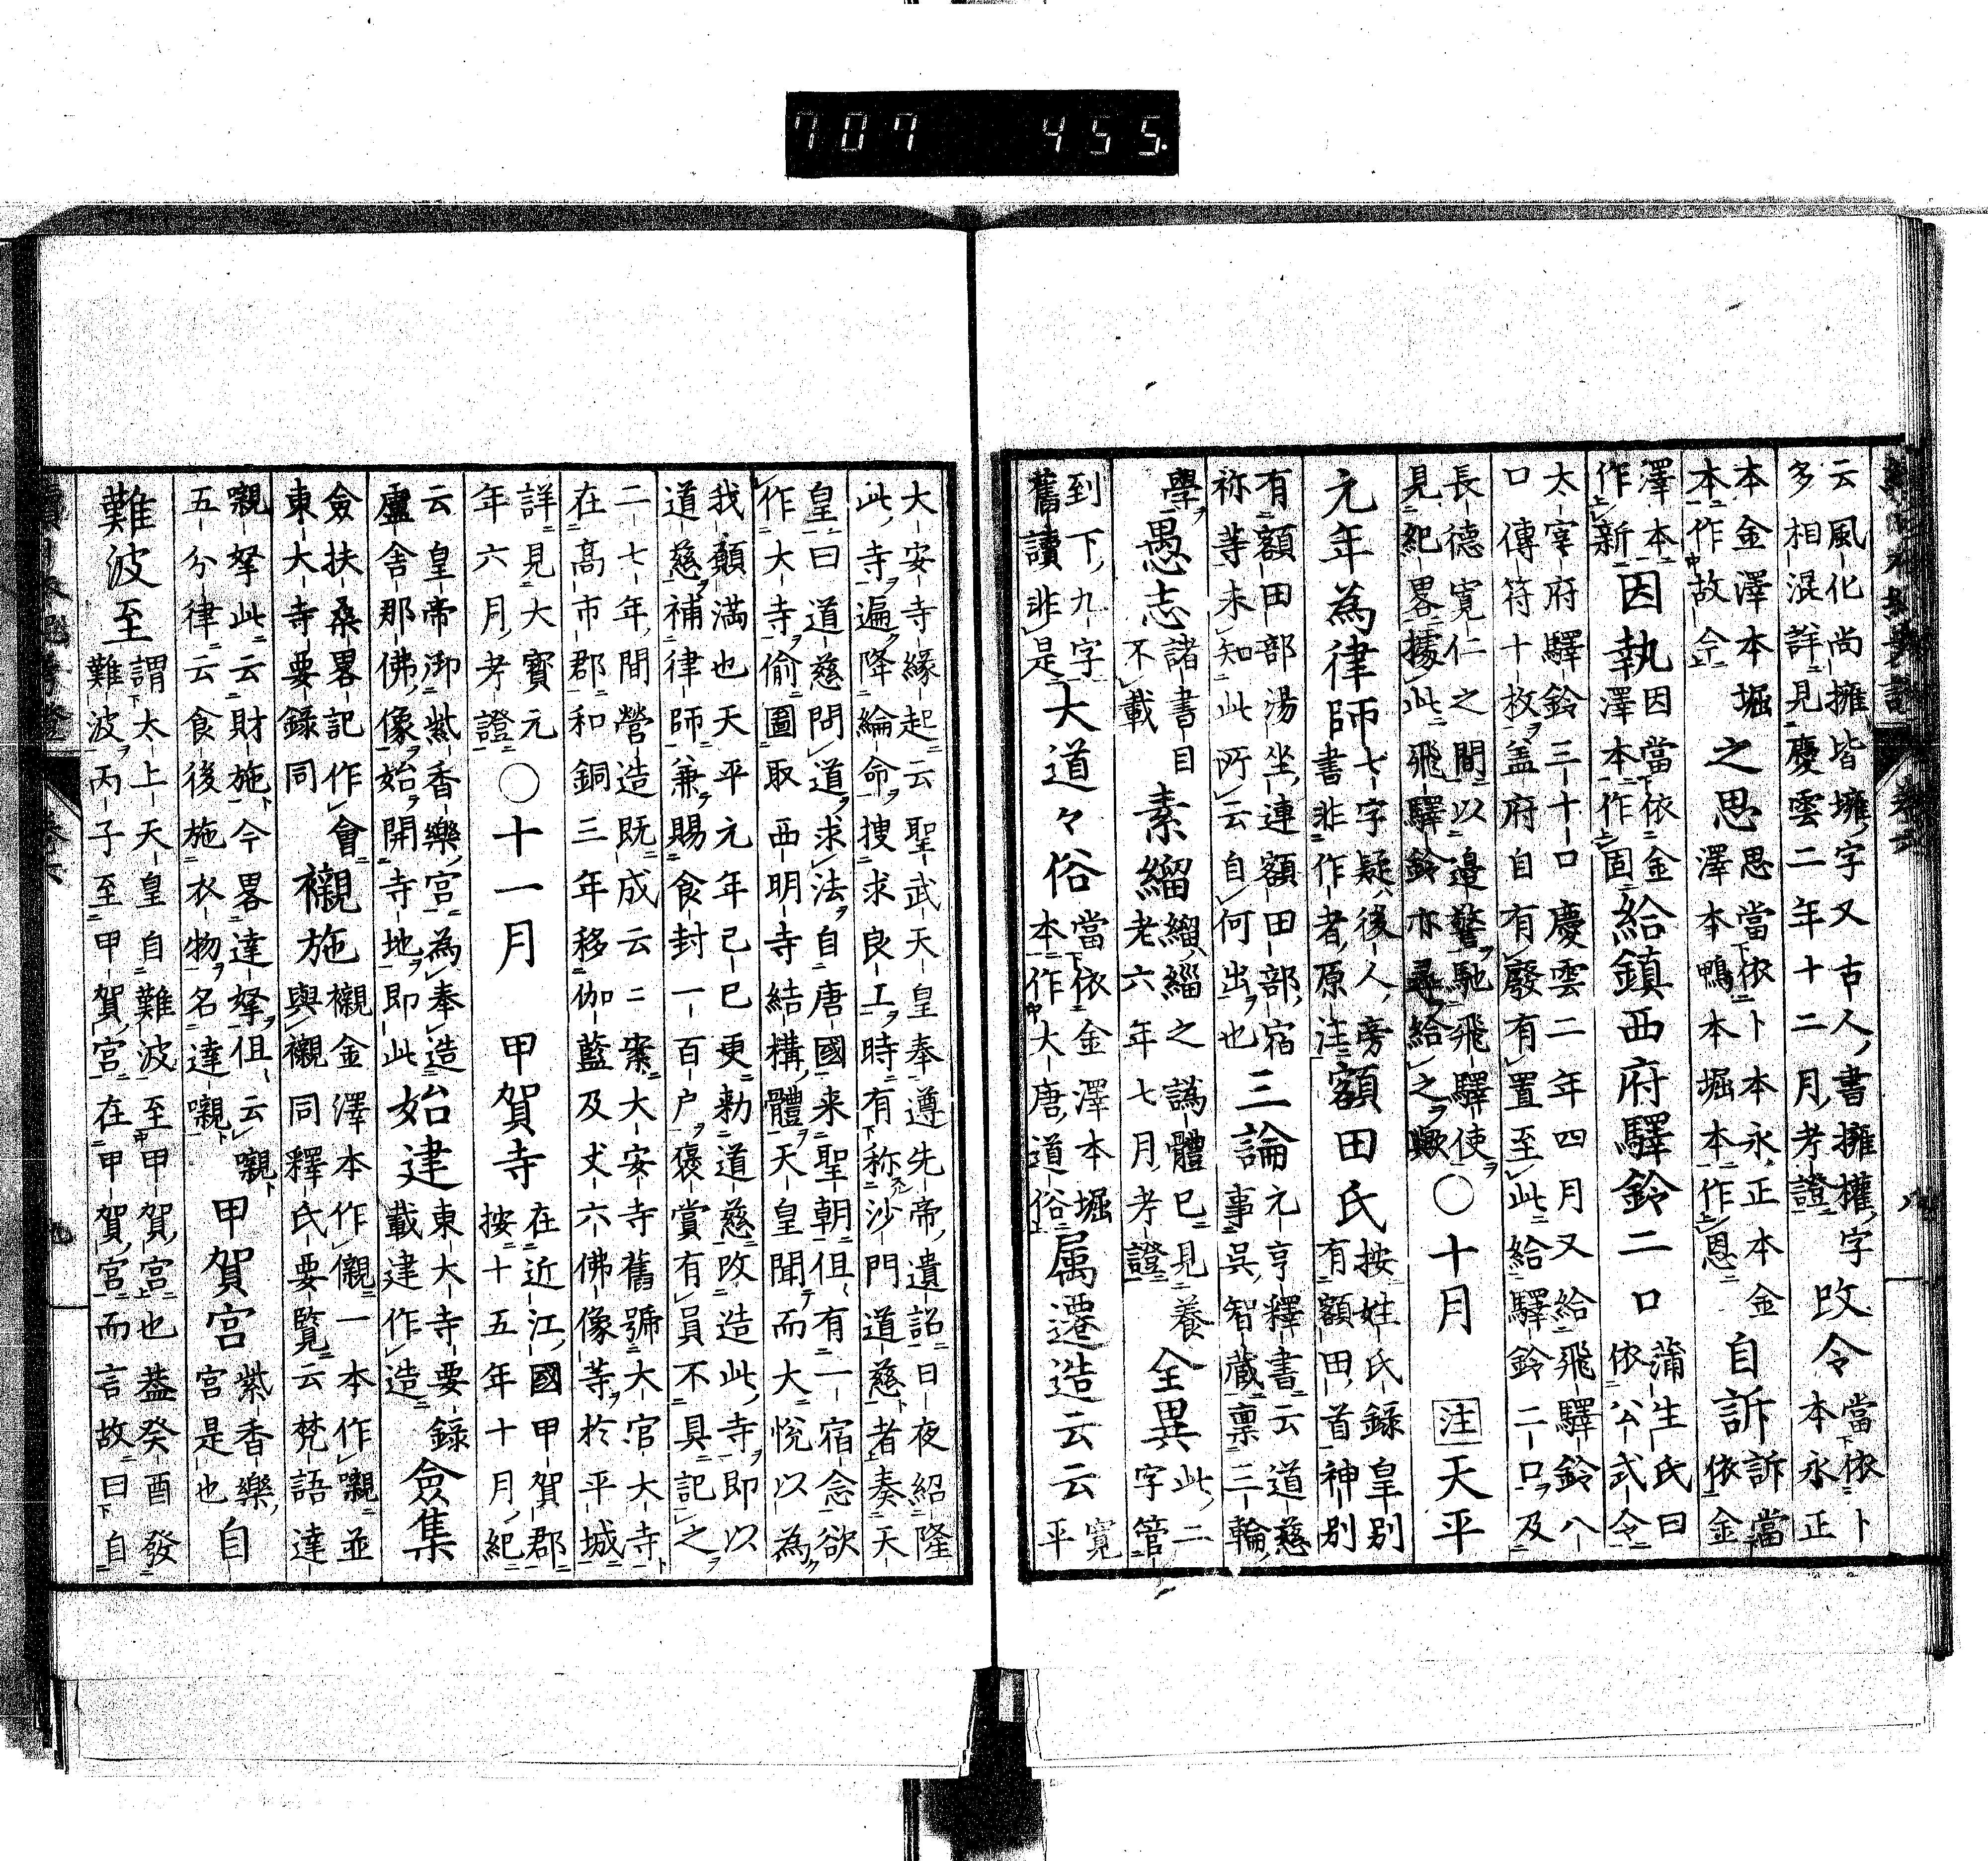 707 455
云風化尚擁皆壅字又古人書擁權字
多相混詳見慶雲二年十二月考證
改令
當依卜
本永正
本金澤本堀
本作故今
之思
思當依卜本永正本金
澤本鴨本堀本作恩
自訴
訴當
依金
澤本
作新
因執
因當依金
澤本作固
給鎮西府驛鈴二口
蒲生氏曰
依公式令
太宰府驛鈴三十口慶雲二年四月又給飛驛鈴八
口傳符十枚盖府自有廢有置至此給驛鈴二口及
長德寬仁之間以邊警馳飛驛使
見紀畧據此飛驛鈴亦尋給之歟
○十月
注
天平
元年為律師
七字疑後人旁
書非作者原注
額田氏
按姓氏錄皇別
有額田首神別
有額田部湯坐連額田部宿
祢等未知此所云自何出也
三論
元亨釋書云道慈
事呉智藏禀三輪
學
愚志
諸書目
不載
素緇
緇緇之譌體已見養
老六年七月考證
全異
此二
字管
到下九字
舊讀非是
大道々俗
當依金澤本堀
本作大唐道俗
属遷造云云
寬
平
大安寺緣起云聖武天皇奉遵先帝遺詔日夜紹隆
此寺遍降綸命搜求良工時有称沙門道慈者奏天
皇曰道慈問道求法自唐國来聖朝但有一宿念欲
作大寺偷圖取西明寺結構體天皇聞而大悦以為
我願満也天平元年己巳更勅道慈改造此寺即以
道慈補律師兼賜食封一百户褒賞有員不具記之
二七年間營造既成云二案大安寺舊號大官大寺
在髙市郡和銅三年移伽藍及丈六佛像等於平城
詳見大寶元
年六月考證
○十一月
甲賀寺
在近江國甲賀郡
按十五年十月紀
云皇帝御紫香樂宮為奉造
盧舍那佛像始開寺地即此
始建
東大寺要錄
載建作造
僉集
僉扶桑畧記作會
東大寺要錄同
襯施
襯金澤本作儭一本作嚫並
與襯同釋氏要覽云梵語達
嚫拏此云財施今畧達拏但云嚫
五分律云食後施衣物名達嚫
甲賀宮
紫香樂
宮是也
自
難波至
謂太上天皇自難波至甲賀宮也葢癸酉發
難波丙子至甲賀宮在甲賀宮而言故曰自